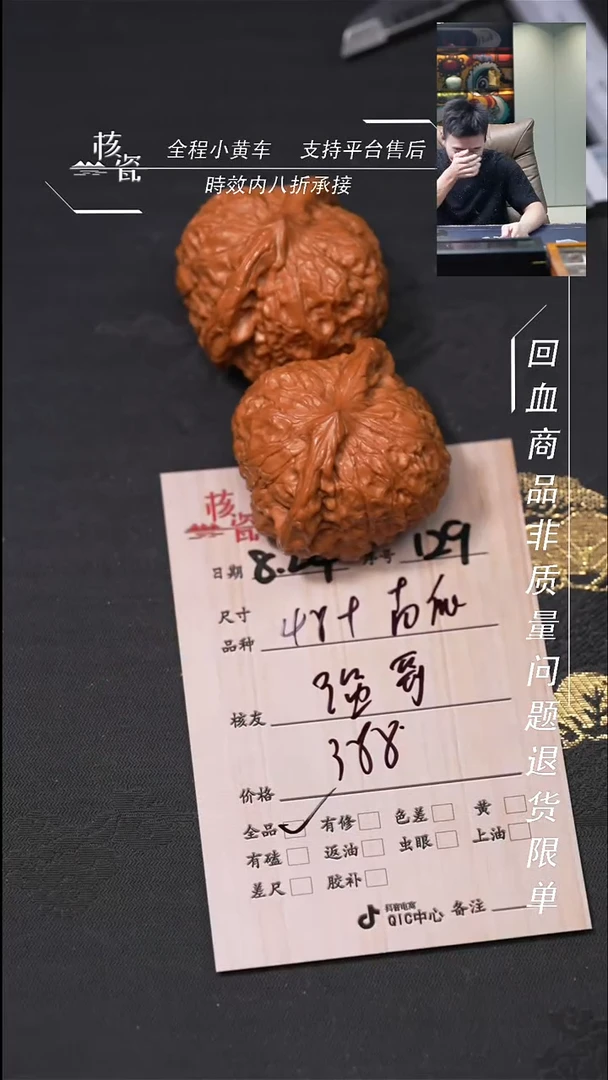 核瓷
全程小黄车 支持平台售后
時效内八折承接
回血商品非质量问题退货限单
核瓷
日期 8.29 序号 129
尺寸
品种 48+
核友 强哥
价格 388
全品 有修 色差 黄
有磕 返油 虫眼 上油
差尺 胶补
抖音电商
QIC中心 备注